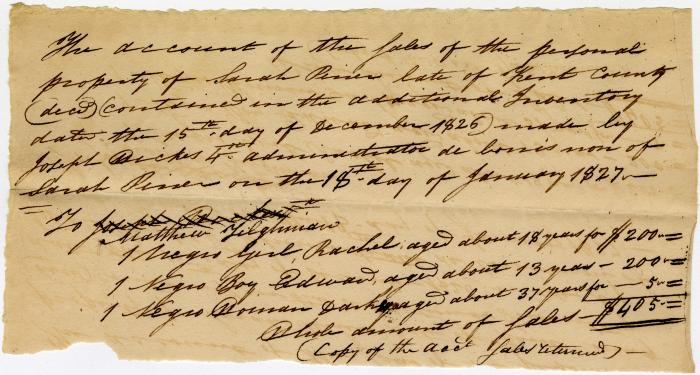 The account of the Sales of the personal
property of Sarah Piner late of Kent County
(decd) (contained in the additional Inventory
dated the 15th day of December 1826) made by
Joseph administrator de bonis non of
Sarah Piner on the 18th day of January 1827
To
Matthew Tilghman
1 Negro Girl, Rachel, aged about 18 years for $200 =
1 Negro Boy Edward, aged about 13 years - 200 =
1 Negro Woman aged about 37 years for - 5 =
Whole amount of Sales - $405 =
(Copy of the acct Sales returned) -